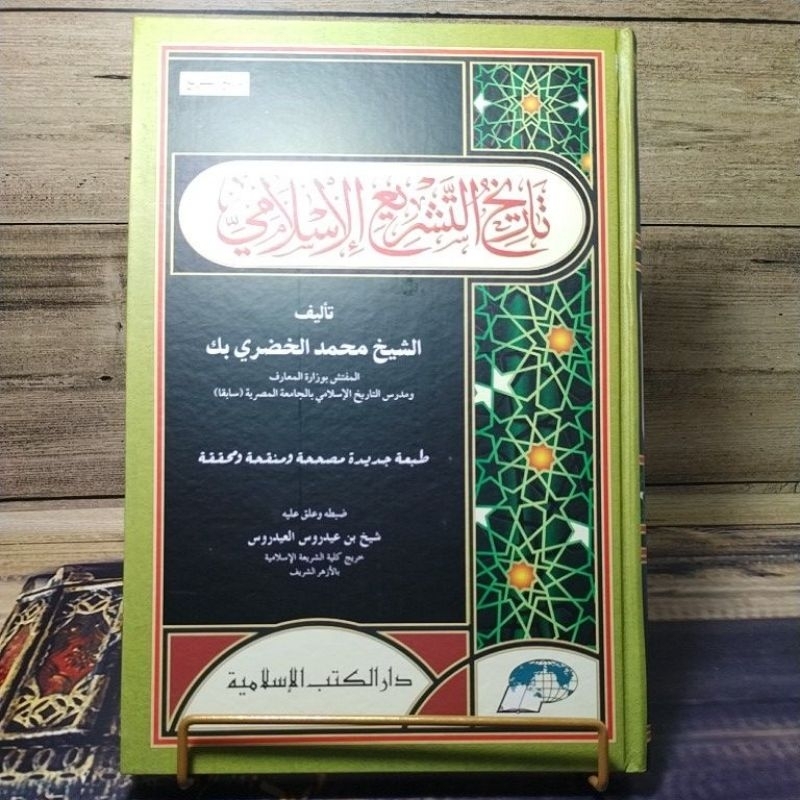 تاريخ التشريع الإسلامي
تأليف
الشيخ محمد الخضري بك
المفتش بوزارة المعارف
ومدرس التاريخ الإسلامي بالجامعة المصرية (سابقا)
طبعة جديدة مصححة ومنقحة ومحققة
ضبطه وعلق عليه
شيخ بن عيدروس العيدروس
خريج كلية الشريعة الإسلامية
بالأزهر الشريف
دار الكتب الإسلامية